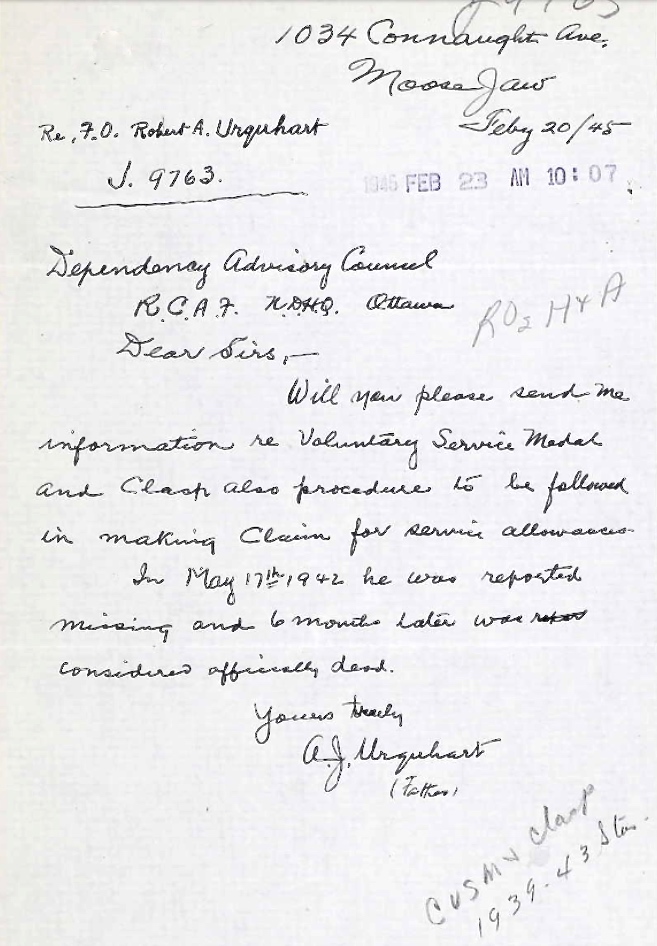 1034 Connaught Ave.
Moose Jaw
Feby 20/45
Re, F.O. Robert A. Urquhart
J. 9763.
1945 FEB 23 AM 10:07
Dependency Advisory Council
R.C.A.F. N.D.H.Q. Ottawa
RO2 H & A
Dear Sirs,—
Will you please send me
information re Voluntary Service Medal
and Clasp also procedure to be followed
in making Claim for service allowances
In May 17th 1942 he was reported
missing and 6 months later was
considered officially dead.
Yours truly
A.J. Urquhart
(Father)
CVSM & Clasp
1939-43 Star.